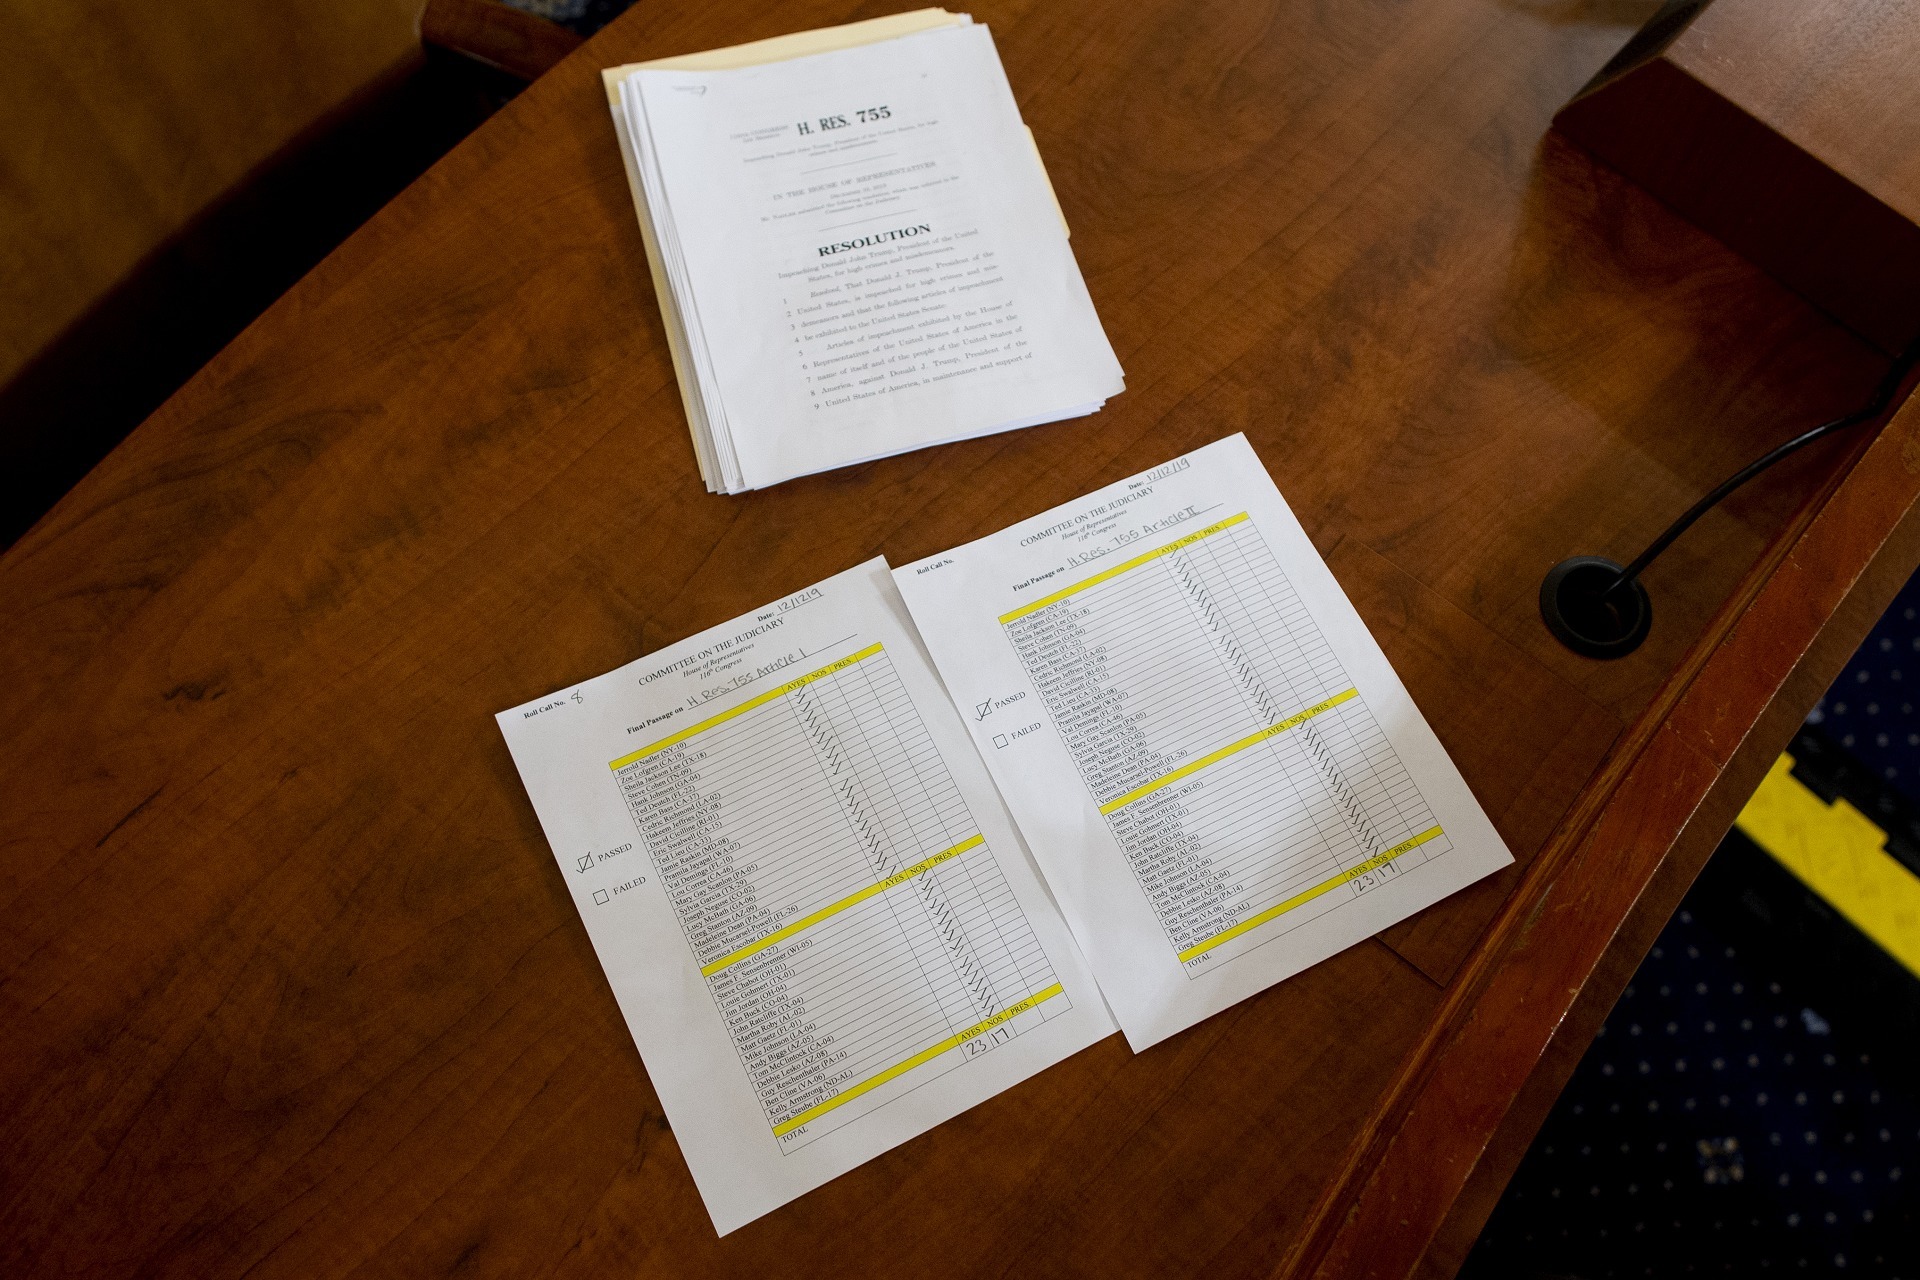 116TH CONGRESS
1ST SESSION
H. RES. 755
Impeaching Donald John Trump, President of the United States, for high
crimes and misdemeanors.
IN THE HOUSE OF REPRESENTATIVES
December 10, 2019
Mr. NADLER submitted the following resolution; which was referred to the
Committee on the Judiciary
RESOLUTION
Impeaching Donald John Trump, President of the United
States, for high crimes and misdemeanors.
1 Resolved, That Donald J. Trump, President of the
2 United States, is impeached for high crimes and mis-
3 demeanors and that the following articles of impeachment
4 be exhibited to the United States Senate:
5 Articles of impeachment exhibited by the House of
6 Representatives of the United States of America in the
7 name of itself and of the people of the United States of
8 America, against Donald J. Trump, President of the
9 United States of America, in maintenance and support of
Date: 12/12/19
COMMITTEE ON THE JUDICIARY
House of Representatives
116th Congress
Roll Call No. 8
Final Passage on H. Res. 755 Article I
PASSED
FAILED
AYES NOS PRES.
Jerrold Nadler (NY-10)
Zoe Lofgren (CA-19)
Sheila Jackson Lee (TX-18)
Steve Cohen (TN-09)
Hank Johnson (GA-04)
Ted Deutch (FL-22)
Karen Bass (CA-37)
Cedric Richmond (LA-02)
Hakeem Jeffries (NY-08)
David Cicilline (RI-01)
Eric Swalwell (CA-15)
Ted Lieu (CA-33)
Jamie Raskin (MD-08)
Pramila Jayapal (WA-07)
Val Demings (FL-10)
Lou Correa (CA-46)
Mary Gay Scanlon (PA-05)
Sylvia Garcia (TX-29)
Joseph Neguse (CO-02)
Lucy McBath (GA-06)
Greg Stanton (AZ-09)
Madeleine Dean (PA-04)
Debbie Mucarsel-Powell (FL-26)
Veronica Escobar (TX-16)
AYES NOS PRES
Doug Collins (GA-27)
James F. Sensenbrenner (WI-05)
Steve Chabot (OH-01)
Louie Gohmert (TX-01)
Jim Jordan (OH-04)
Ken Buck (CO-04)
John Ratcliffe (TX-04)
Martha Roby (AL-02)
Matt Gaetz (FL-01)
Mike Johnson (LA-04)
Andy Biggs (AZ-05)
Tom McClintock (CA-04)
Debbie Lesko (AZ-08)
Guy Reschenthaler (PA-14)
Ben Cline (VA-06)
Kelly Armstrong (ND-AL)
Greg Steube (FL-17)
AYES NOS PRES
TOTAL 23 17
Date: 12/12/19
COMMITTEE ON THE JUDICIARY
House of Representatives
116th Congress
Roll Call No.
Final Passage on H. Res. 755 Article II
PASSED
FAILED
AYES NOS PRES.
Jerrold Nadler (NY-10)
Zoe Lofgren (CA-19)
Sheila Jackson Lee (TX-18)
Steve Cohen (TN-09)
Hank Johnson (GA-04)
Ted Deutch (FL-22)
Karen Bass (CA-37)
Cedric Richmond (LA-02)
Hakeem Jeffries (NY-08)
David Cicilline (RI-01)
Eric Swalwell (CA-15)
Ted Lieu (CA-33)
Jamie Raskin (MD-08)
Pramila Jayapal (WA-07)
Val Demings (FL-10)
Lou Correa (CA-46)
Mary Gay Scanlon (PA-05)
Sylvia Garcia (TX-29)
Joseph Neguse (CO-02)
Lucy McBath (GA-06)
Greg Stanton (AZ-09)
Madeleine Dean (PA-04)
Debbie Mucarsel-Powell (FL-26)
Veronica Escobar (TX-16)
AYES NOS PRES
Doug Collins (GA-27)
James F. Sensenbrenner (WI-05)
Steve Chabot (OH-01)
Louie Gohmert (TX-01)
Jim Jordan (OH-04)
Ken Buck (CO-04)
John Ratcliffe (TX-04)
Martha Roby (AL-02)
Matt Gaetz (FL-01)
Mike Johnson (LA-04)
Andy Biggs (AZ-05)
Tom McClintock (CA-04)
Debbie Lesko (AZ-08)
Guy Reschenthaler (PA-14)
Ben Cline (VA-06)
Kelly Armstrong (ND-AL)
Greg Steube (FL-17)
AYES NOS PRES
TOTAL 23 17